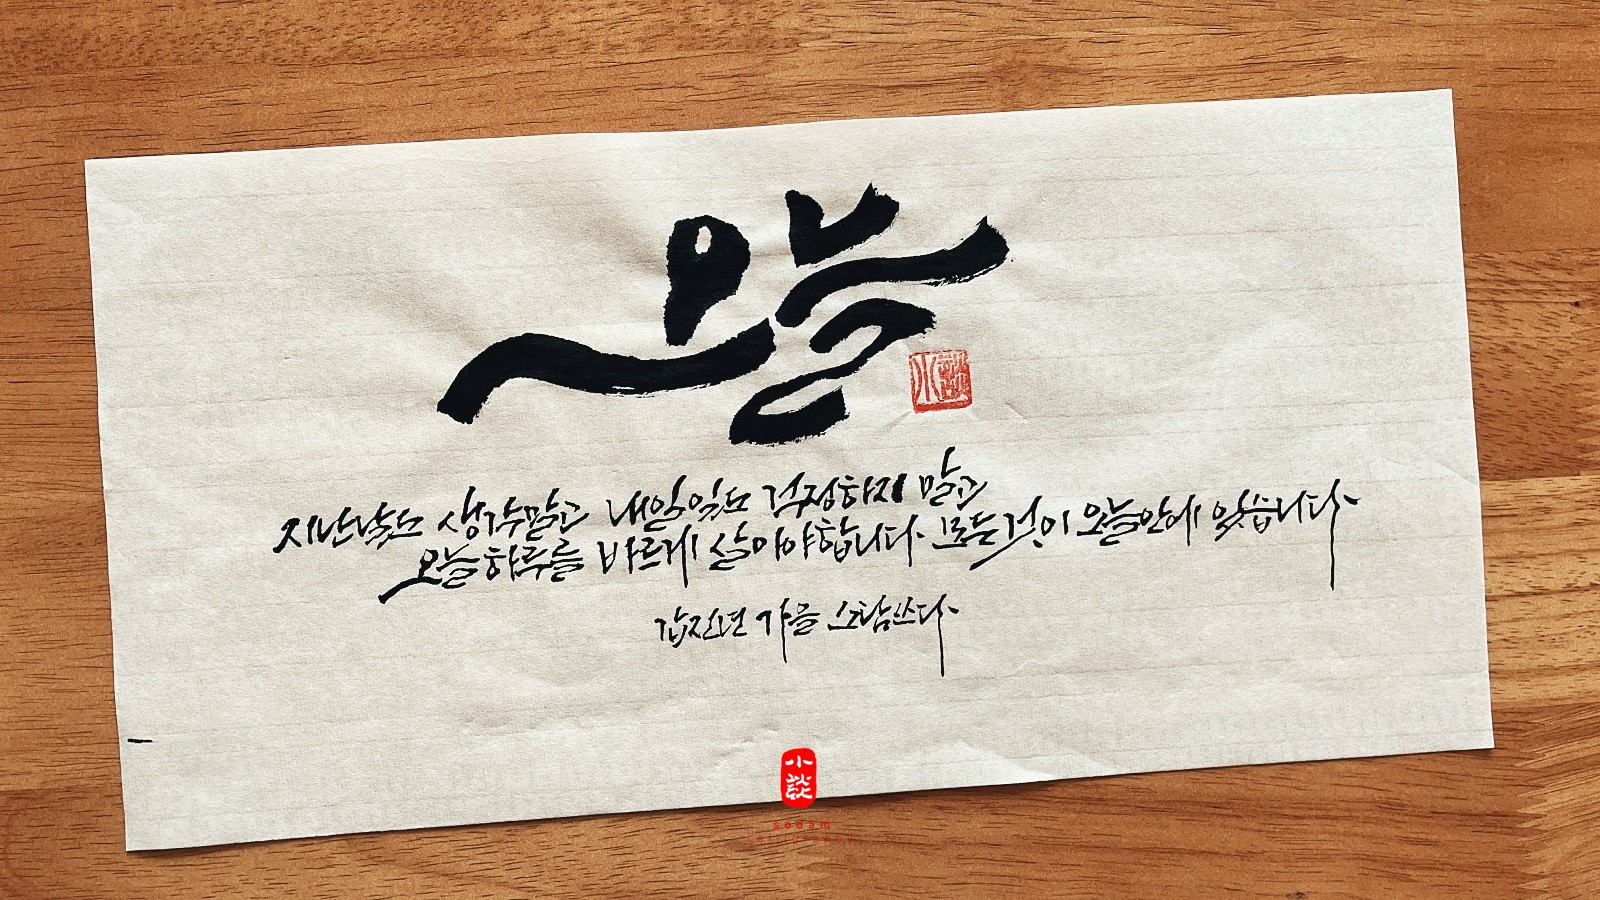 오늘
小談
지난날도 생각말고 내일일도 걱정하지 말고
오늘하루를 바르게 살아야합니다. 모든것이 오늘안에 있습니다
갑진년 가을 소담쓰다
小談
sodam
calligraphy